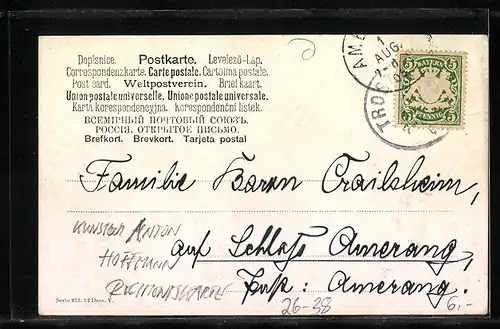 Dopisnice. Postkarte. Levelező-Lap.
Correspondenzkarte. Carte postale. Cartolina postale.
Post card. Weltpostverein. Briefkaart.
Union postale universelle. Unione postale universale.
Karta korespondencyjna. Korespondenční lístek.
ВСЕМІРНЫЙ ПОЧТОВЫЙ СОЮЗЪ.
РОССІЯ. ОТКРЫТОЕ ПИСЬМО.
Brefkort. Brevkort. Tarjeta postal
AME
1
AUG.
BAYERN
5 5
PFENNIG
TRO
Familie Baron Crailsheim,
auf Schloß Amerang,
Post: Amerang.
ANTON
HOFFMANN
26-38
6.-
Serie 275. 12 Dess. V.